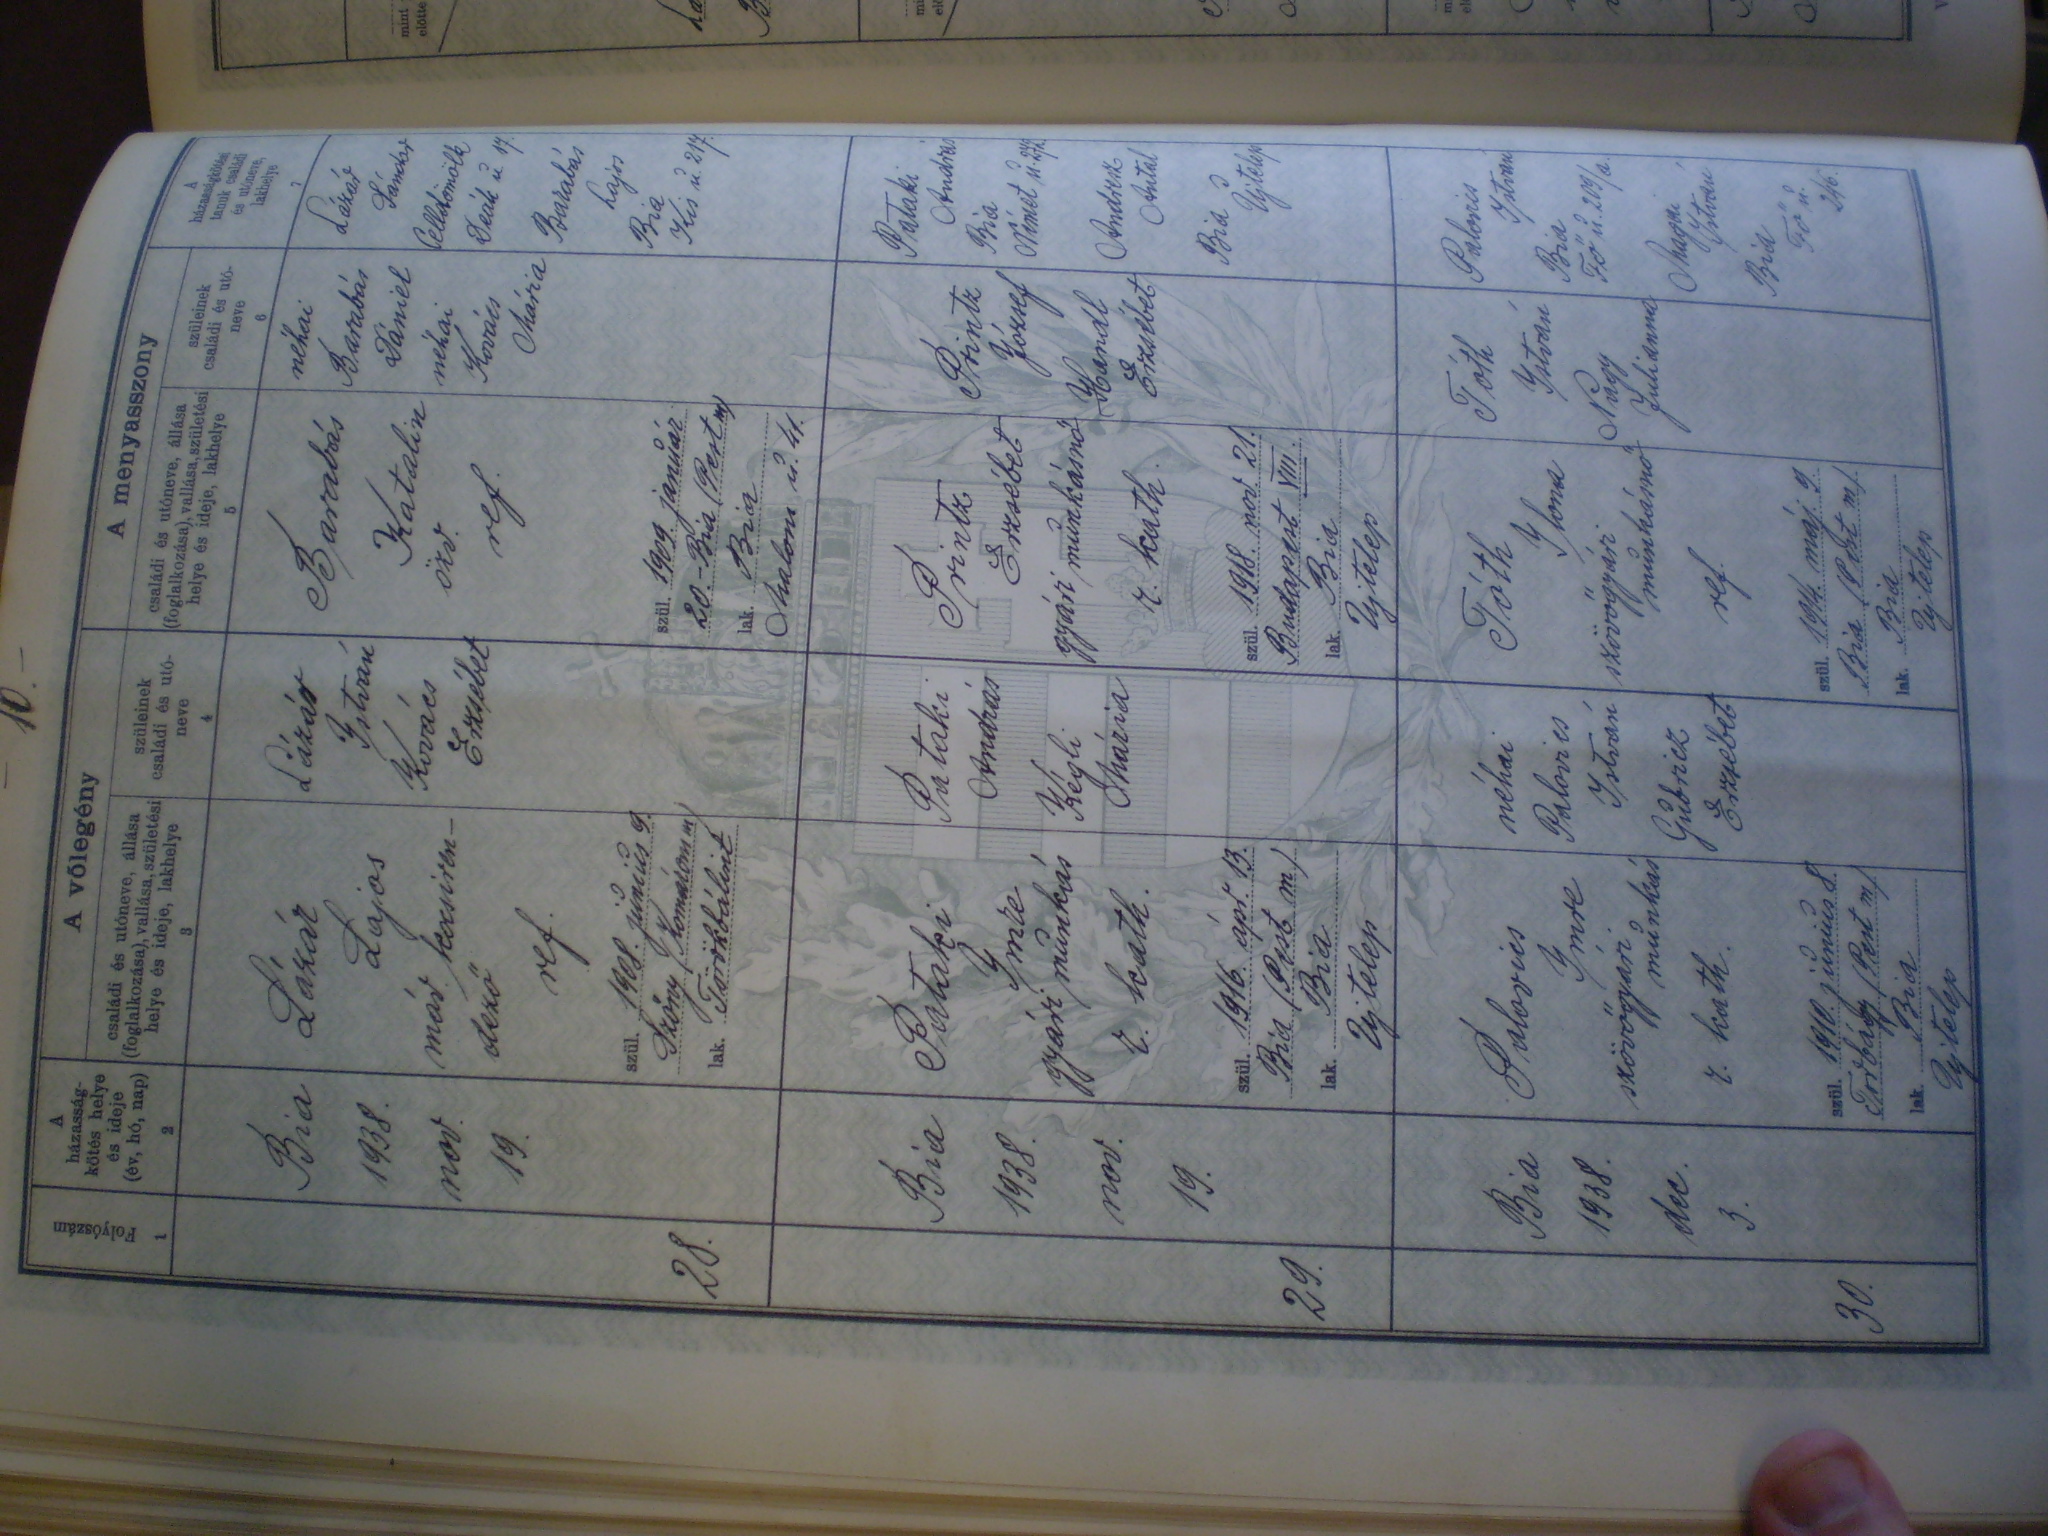 - 10. -
Folyószám
1
A
házasság-
kötés helye
és ideje
(év, hó, nap)
2
A vőlegény
családi és utóneve, állása
(foglalkozása), vallása, születési
helye és ideje, lakhelye
3
szüleinek
családi és utó-
neve
4
A menyasszony
családi és utóneve, állása
(foglalkozása), vallása, születési
helye és ideje, lakhelye
5
szüleinek
családi és utó-
neve
6
A
házasságkötési
tanuk családi
és utóneve,
lakhelye
7
28.
Bia
1938.
nov.
19.
Lázár
Lajos
máv.
ref.
szül. 1908. június 9.
Szőny /Komárom m/
lak. Törökbálint
Lázár
István
Kovács
Erzsébet
Barabás
Katalin
özv.
ref.
szül. 1909. január
20 - Bia /Pest m/
lak. Bia
Malom u. 41.
néhai
Barabás
Dániel
néhai
Kovács
Mária
Lázár
Sándor
Celldömölk
Deák u. 17.
Barabás
Lajos
Bia
Kis u. 217.
29.
Bia
1938.
nov.
19.
Pataki
Imre
gyári munkás
r. kath.
szül. 1916. ápr. 13.
Bia /Pest m/
lak. Bia
Ujtelep
Pataki
András
Kégli
Mária
Printz
Erzsébet
gyári munkásnő
r. kath.
szül. 1918. nov. 21.
Budapest VIII.
lak. Bia
Ujtelep
Printz
József
Handl
Erzsébet
Pataki
András
Bia
Német u.
Andrek
Antal
Bia
Ujtelep
30.
Bia
1938.
dec.
3.
Palovics
Imre
szövőgyári
munkás
r. kath.
szül. 1910. június 8.
Torbágy /Pest m/
lak. Bia
Ujtelep
néhai
Palovics
István
Gubricz
Erzsébet
Tóth
Ilona
szövőgyári
munkásnő
ref.
szül. 1914. máj. 9.
Bia /Pest m/.
lak. Bia
Ujtelep
Tóth
István
Nagy
Julianna
Palovics
István
Bia
Fő u. 209/a.
István
Bia
Fő u.
246.